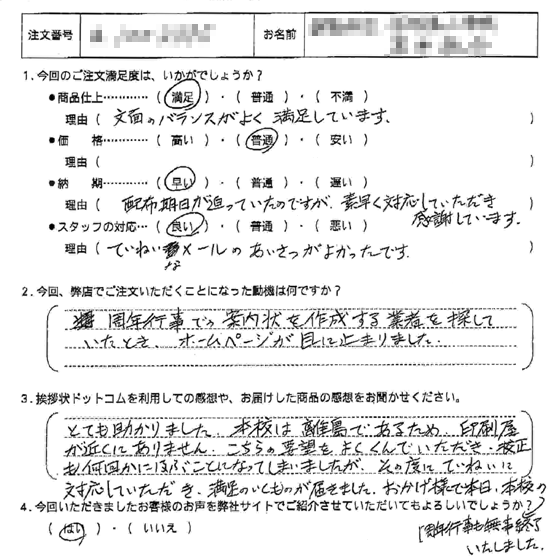 注文番号 お名前
1.今回のご注文満足度は、いかがでしょうか?
●商品仕上…………( 満足 )・( 普通 )・( 不満 )
理由( 文面のバランスがよく満足しています. )
●価 格…………( 高い )・( 普通 )・( 安い )
理由( )
●納 期…………( 早い )・( 普通 )・( 遅い )
理由( 配布期日が迫っていたのですが、素早く対応していただき
感謝しています. )
●スタッフの対応…( 良い )・( 普通 )・( 悪い )
理由( ていねいなメールのあいさつがよかったです. )
2.今回、弊店でご注文いただくことになった動機は何ですか?
周年行事での案内状を作成する業者を探して
いたとき、ホームページが目に止まりました.
3.挨拶状ドットコムを利用しての感想や、お届けした商品の感想をお聞かせください。
とても助かりました. 本校は離島であるため、印刷屋
が近くにありません. こちらの要望をよくくんでいただき、校正
も何回かにほぶことになってしまいましたが、その度にていねいに
対応していただき、満足のいくものが届きました. おかげ様で本日、本校の
4.今回いただきましたお客様のお声を弊社サイトでご紹介させていただいてもよろしいでしょうか?
( はい )・( いいえ )
周年行事も無事終了
いたしました.